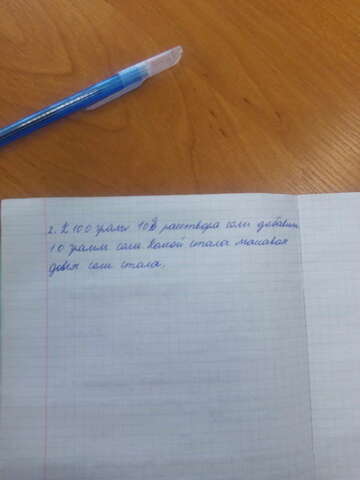 2. К 100 грамм 10% расствора соли добавили
10 грамм соли. Какой стала масавая
доля соли стала.